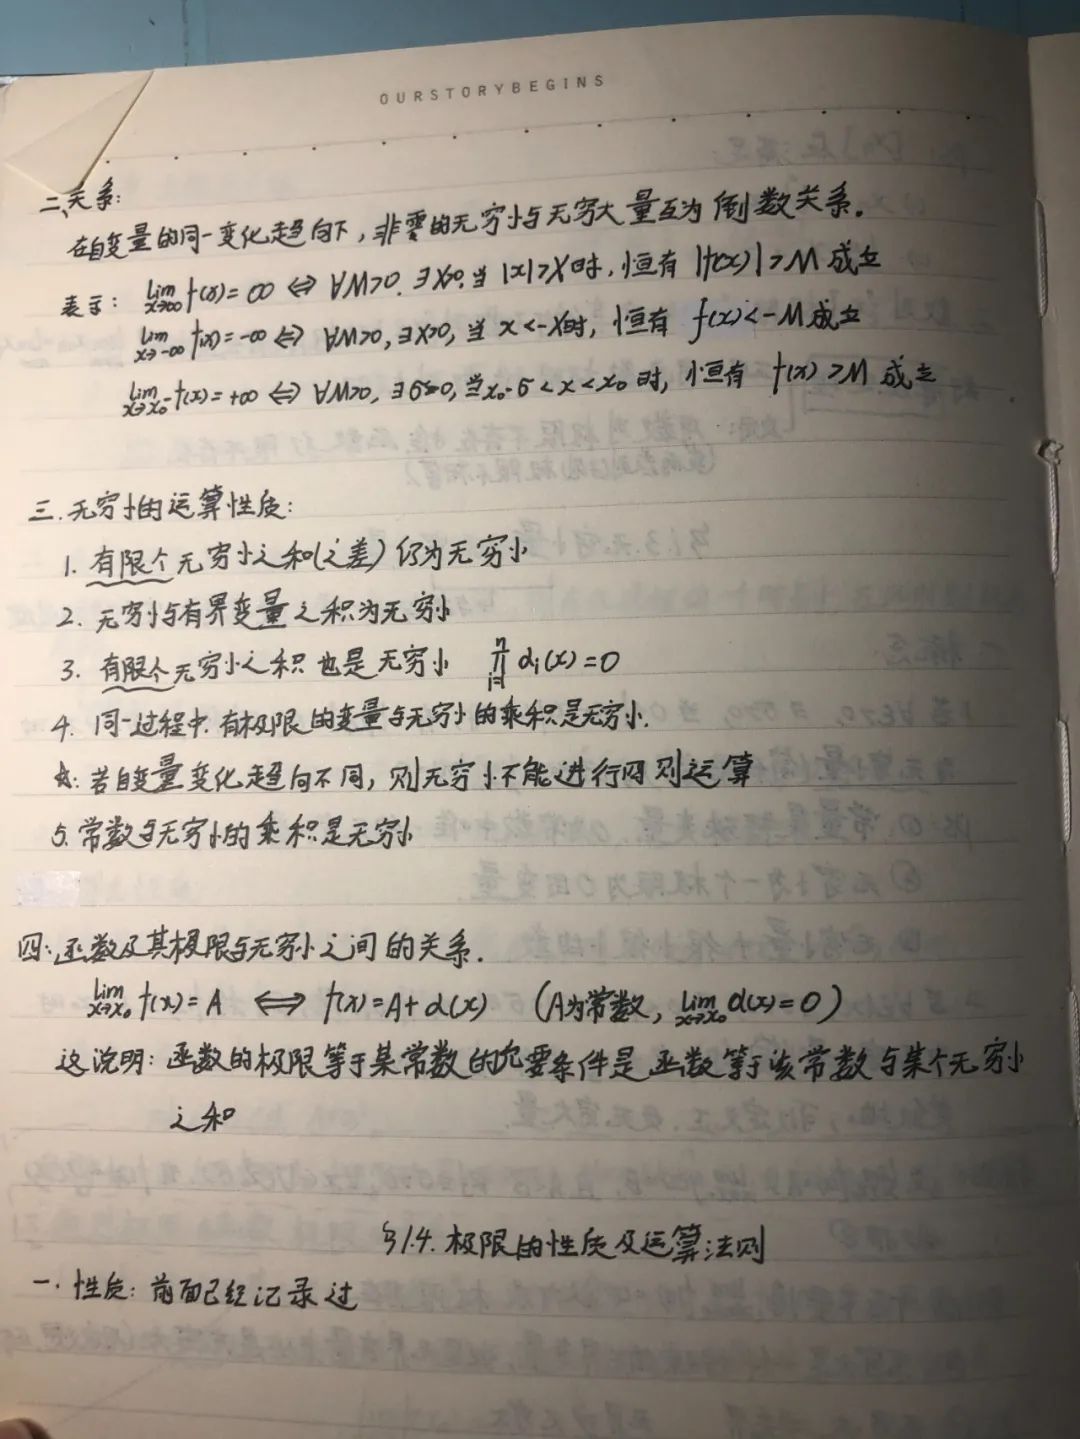 OURSTORYBEGINS
二、关系:
在自变量的同一变化趋向下，非零的无穷小与无穷大量互为倒数关系。
表示: lim x→∞ f(x)=∞ ⇔ ∀M>0, ∃X>0, 当 |x|>X时, 恒有 |f(x)|>M 成立
lim x→-∞ f(x)=-∞ ⇔ ∀M>0, ∃X>0, 当 x<-X时, 恒有 f(x)<-M成立
lim x→x₀⁻ f(x)=+∞ ⇔ ∀M>0, ∃δ>0, 当x₀-δ<x<x₀时, 恒有 f(x)>M 成立
三.无穷小的运算性质:
1. 有限个无穷小之和(之差)仍为无穷小
2. 无穷小与有界变量之积为无穷小
3. 有限个无穷小之积也是无穷小 ∏ i=1 n αi(x)=0
4. 同一过程中.有极限的变量与无穷小的乘积是无穷小.
☆: 若自变量变化趋向不同，则无穷小不能进行四则运算
5. 常数与无穷小的乘积是无穷小
四:函数及其极限与无穷小之间的关系.
lim x→x₀ f(x)=A ⟺ f(x)=A+α(x) (A为常数, lim x→x₀ α(x)=0)
这说明: 函数的极限等于某常数的充要条件是函数等于该常数与某个无穷小
之和
§1.4. 极限的性质及运算法则
一. 性质: 前面已经记录过